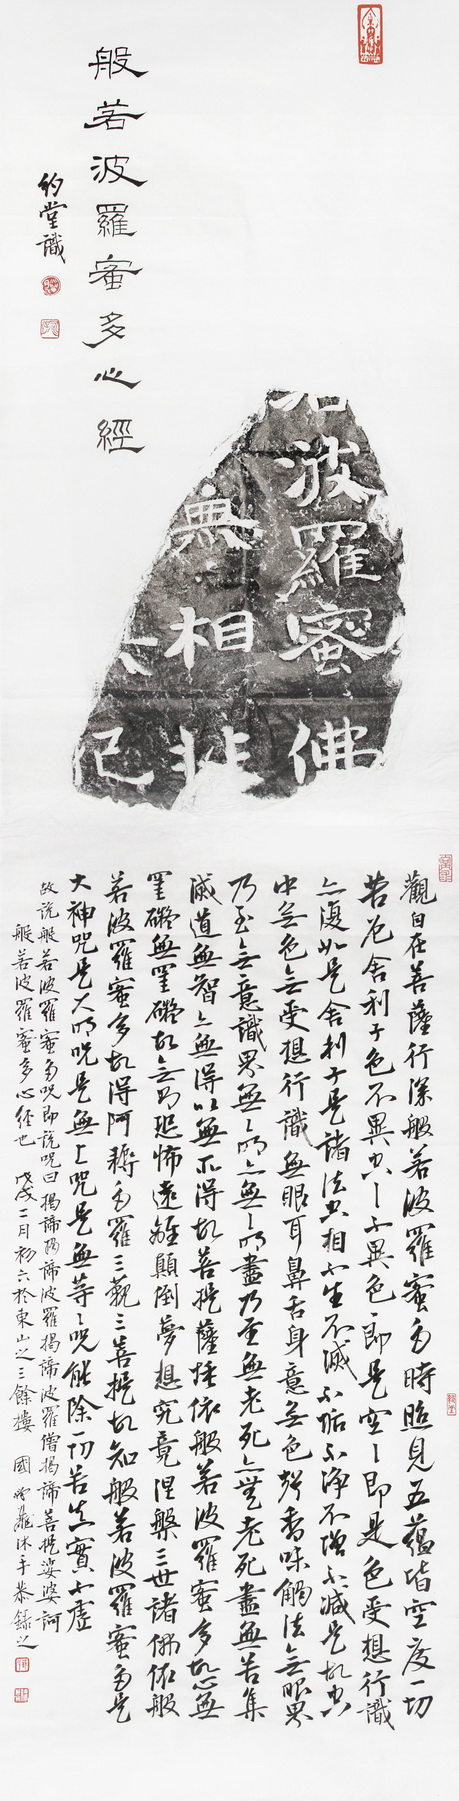 般若波羅蜜多心經
堂識
波羅蜜佛
無相非
觀自在菩薩行深般若波羅蜜多時照見五蘊皆空度一切
苦厄舍利子色不異空〻不異色〻即是空〻即是色受想行識
亦復如是舍利子是諸法空相不生不滅不垢不淨不增不減是故空
中無色無受想行識無眼耳鼻舌身意無色聲香味觸法無眼界
乃至無意識界無〻明亦無〻明盡乃至無老死亦無老死盡無苦集
滅道無智亦無得以無所得故菩提薩埵依般若波羅蜜多故心無
罣礙無罣礙故無有恐怖遠離顛倒夢想究竟涅槃三世諸佛依般
若波羅蜜多故得阿耨多羅三藐三菩提故知般若波羅蜜多是
大神咒是大明咒是無上咒是無等〻咒能除一切苦真實不虛
故說般若波羅蜜多咒即說咒曰揭諦揭諦波羅揭諦波羅僧揭諦菩提娑婆訶
般若波羅蜜多心經也 戊戌二月初六於東山之三餘樓 國 沐手恭錄之